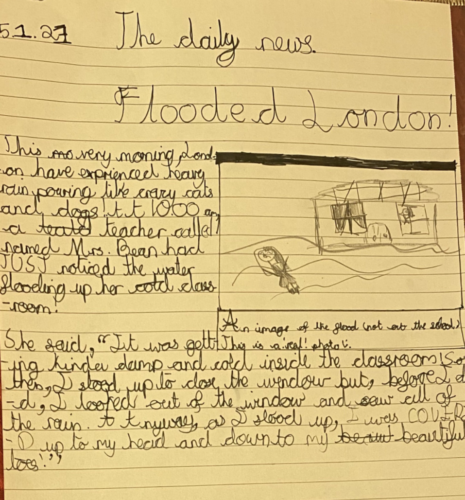 5.1.21
The daily news.
Flooded London!
This mo very morning Lond-
on have exprienced heavy
rain pouring like crazy cats
and dogs! At 1000 am
a teacher called
named Mrs. Bean had
JUST noticed the water
flooding up her cold class
-room!
An image of the flood (not at the school)
This is a real! photo!.
She said, "It was gett-
ing kinder damp and cold inside the classroom! So
then, I stood up to close the window but, before I d
-d, I looked out of the window and saw all of
the rain. Anyway, as I stood up, I was COVERE
-D up to my head and down to my beautiful
toes!"